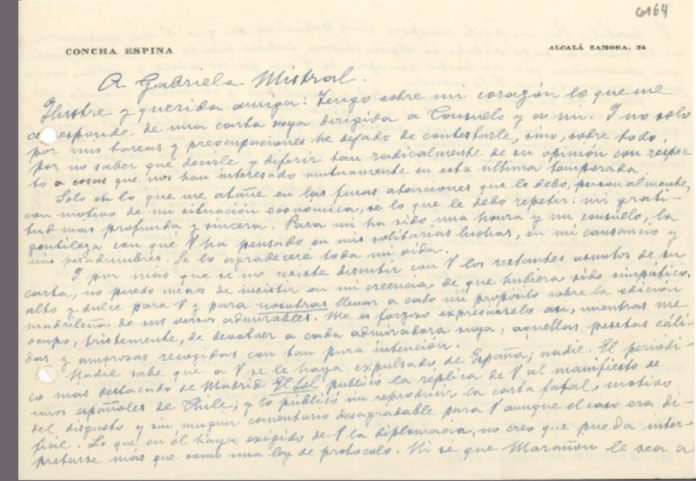 6164
CONCHA ESPINA
ALCALÁ ZAMORA, 24
A Gabriela Mistral.
Ilustre y querida amiga: Tengo sobre mi corazón lo que me
corresponde de una carta suya dirigida a Consuelo y a mi. Y no solo
por mis tareas y preocupaciones he dejado de contestarle, sino, sobre todo,
por no saber que decirle y diferir tan radicalmente de su opinión con respec
to a cosas que nos han interesado mutuamente en esta última temporada.
Solo en lo que me atañe en las finas atenciones que le debo, personalmente,
con motivo de mi situacion económica, se lo que le debo repetir: mi grati-
tud mas profunda y sincera. Para mi ha sido una honra y un consuelo, la
gentileza con que V ha pensado en mis solitarias luchas, en mi cansancio y
mis pesadumbres. Se lo agradeceré toda mi vida.
Y por mas que se me resiste discutir con V los restantes asuntos de su
carta, no puedo menos de insistir en mi creencia de que hubiera sido simpático,
alto y dulce para V y para nosotras llevar a cabo un proposito sobre la edición
madrileña de sus versos admirables. Me es forzoso expresarselo asi, mientras me
ocupo, tristemente, de devolver a cada admiradora suya, aquellas pesetas cáli-
das y amorosas recogidas con tan pura intención.
Nadie sabe que a V se le haya expulsado de España; nadie. El periódi-
co mas destacado de Madrid El Sol, publicó la réplica de V al manifiesto de
unos españoles de Chile; y lo publicó sin reproducir la carta fatal, motivo
del disgusto y sin ningun comentario desagradable para V aunque el caso era di-
ficil. Lo que en él haya exigido de V la diplomacia, no creo que pueda inter-
pretarse más que como una ley de protocolo. Ni se que Marañon le sea a